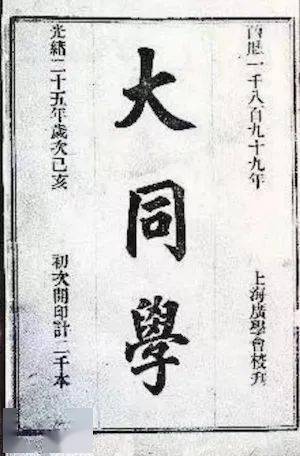 西歷一千八百九十九年
上海廣學會校刋
大同學
光緒二十五年歲次己亥
初次開印計二千本